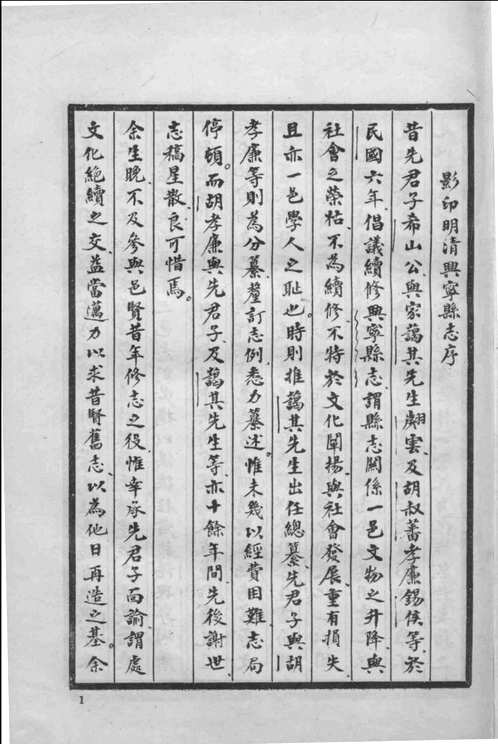 影印明清興寧縣志序
昔先君子希山公、與宗藹其先生翽雲、及胡叔蕃孝廉錫侯等、於
民國六年、倡議續修興寧縣志、謂縣志關係一邑文物之升降、與
社會之榮枯、不為續修、不特於文化闡揚、與社會發展、重有損失、
且亦一邑學人之恥也。時則推藹其先生出任總纂、先君子與胡
孝廉等則為分纂、釐訂志例、悉力纂述。惟未幾以經費困難、志局
停頓。而胡孝廉與先君子、及藹其先生等、亦十餘年間、先後謝世、
志稿星散、良可惜焉。
余生晚、不及參與邑賢昔年修志之役、惟幸承先君子面諭、謂處
文化絕續之交、益當邁力以求昔賢舊志、以為他日再造之基。余
1